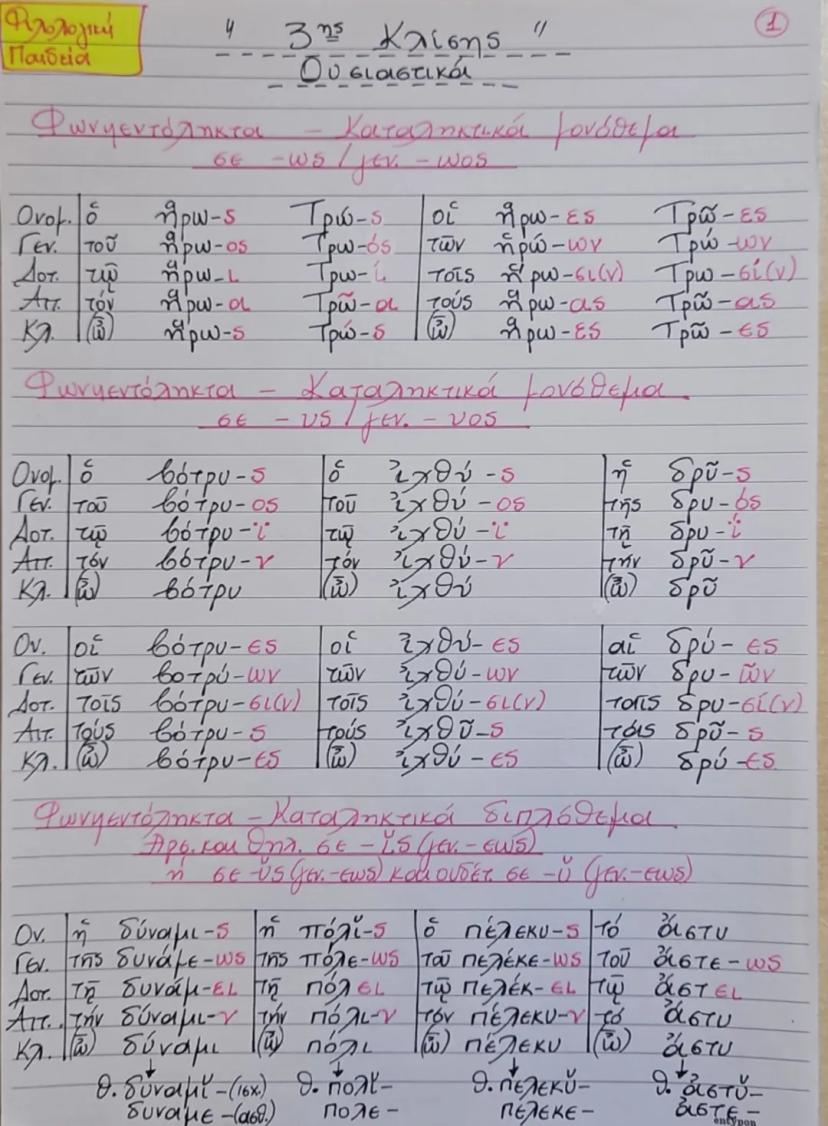 Φιλολογική
Παιδεία
" 3ης Κλίσης "
Ουσιαστικά
1
Φωνηεντόληκτα - Καταληκτικά μονόθεμα
σε -ως / γεν. -ωος
Ονομ. ὁ ἥρω-ς Τρώ-ς οἱ ἥρω-ες Τρῶ-ες
Γεν. τοῦ ἥρω-ος Τρω-ός τῶν ἡρώ-ων Τρώ-ων
Δοτ. τῷ ἥρω-ι Τρω-ί τοῖς ἥρω-σι(ν) Τρω-σί(ν)
Αιτ. τόν ἥρω-α Τρῶ-α τούς ἥρω-ας Τρῶ-ας
Κλ. (ὦ) ἥρω-ς Τρώ-ς (ὦ) ἥρω-ες Τρῶ-ες
Φωνηεντόληκτα - Καταληκτικά μονόθεμα
σε -υς / γεν. -υος
Ονομ. ὁ βότρυ-ς ὁ ἰχθύ-ς ἡ δρῦ-ς
Γεν. τοῦ βότρυ-ος τοῦ ἰχθύ-ος τῆς δρυ-ός
Δοτ. τῷ βότρυ-ϊ τῷ ἰχθύ-ϊ τῇ δρυ-ΐ
Αιτ. τόν βότρυ-ν τόν ἰχθύ-ν τήν δρῦ-ν
Κλ. (ὦ) βότρυ (ὦ) ἰχθύ (ὦ) δρῦ
Ον. οἱ βότρυ-ες οἱ ἰχθύ-ες αἱ δρύ-ες
Γεν. τῶν βοτρύ-ων τῶν ἰχθύ-ων τῶν δρυ-ῶν
Δοτ. τοῖς βότρυ-σι(ν) τοῖς ἰχθύ-σι(ν) τοῖς δρυ-σί(ν)
Αιτ. τούς βότρυ-ς τούς ἰχθῦ-ς τάις δρῦ-ς
Κλ. (ὦ) βότρυ-ες (ὦ) ἰχθύ-ες (ὦ) δρύ-ες
Φωνηεντόληκτα - Καταληκτικά διπλόθεμα
Αρσ. και θηλ. σε -ῐς (γεν. -εως)
ή σε -ῠς (γεν. -εως) και ουδέτ. σε -ῠ (γεν. -εως)
Ον. ἡ δύναμι-ς ἡ πόλῐ-ς ὁ πέλεκυ-ς τό ἄστυ
Γεν. τῆς δυνάμε-ως τῆς πόλε-ως τοῦ πελέκε-ως τοῦ ἄστε-ως
Δοτ. τῇ δυνάμ-ει τῇ πόλει τῷ πελέκ-ει τῷ ἄστει
Αιτ. τήν δύναμι-ν τήν πόλι-ν τόν πέλεκυ-ν τό ἄστυ
Κλ. (ὦ) δύναμι (ὦ) πόλι (ὦ) πέλεκυ (ὦ) ἄστυ
θ. δύναμῐ-(ισχ.) θ. πολῐ- θ. πελεκῠ- θ. ἀστῠ-
δυναμε-(ασθ.) πολε- πέλεκε- ἀστε-
entypon